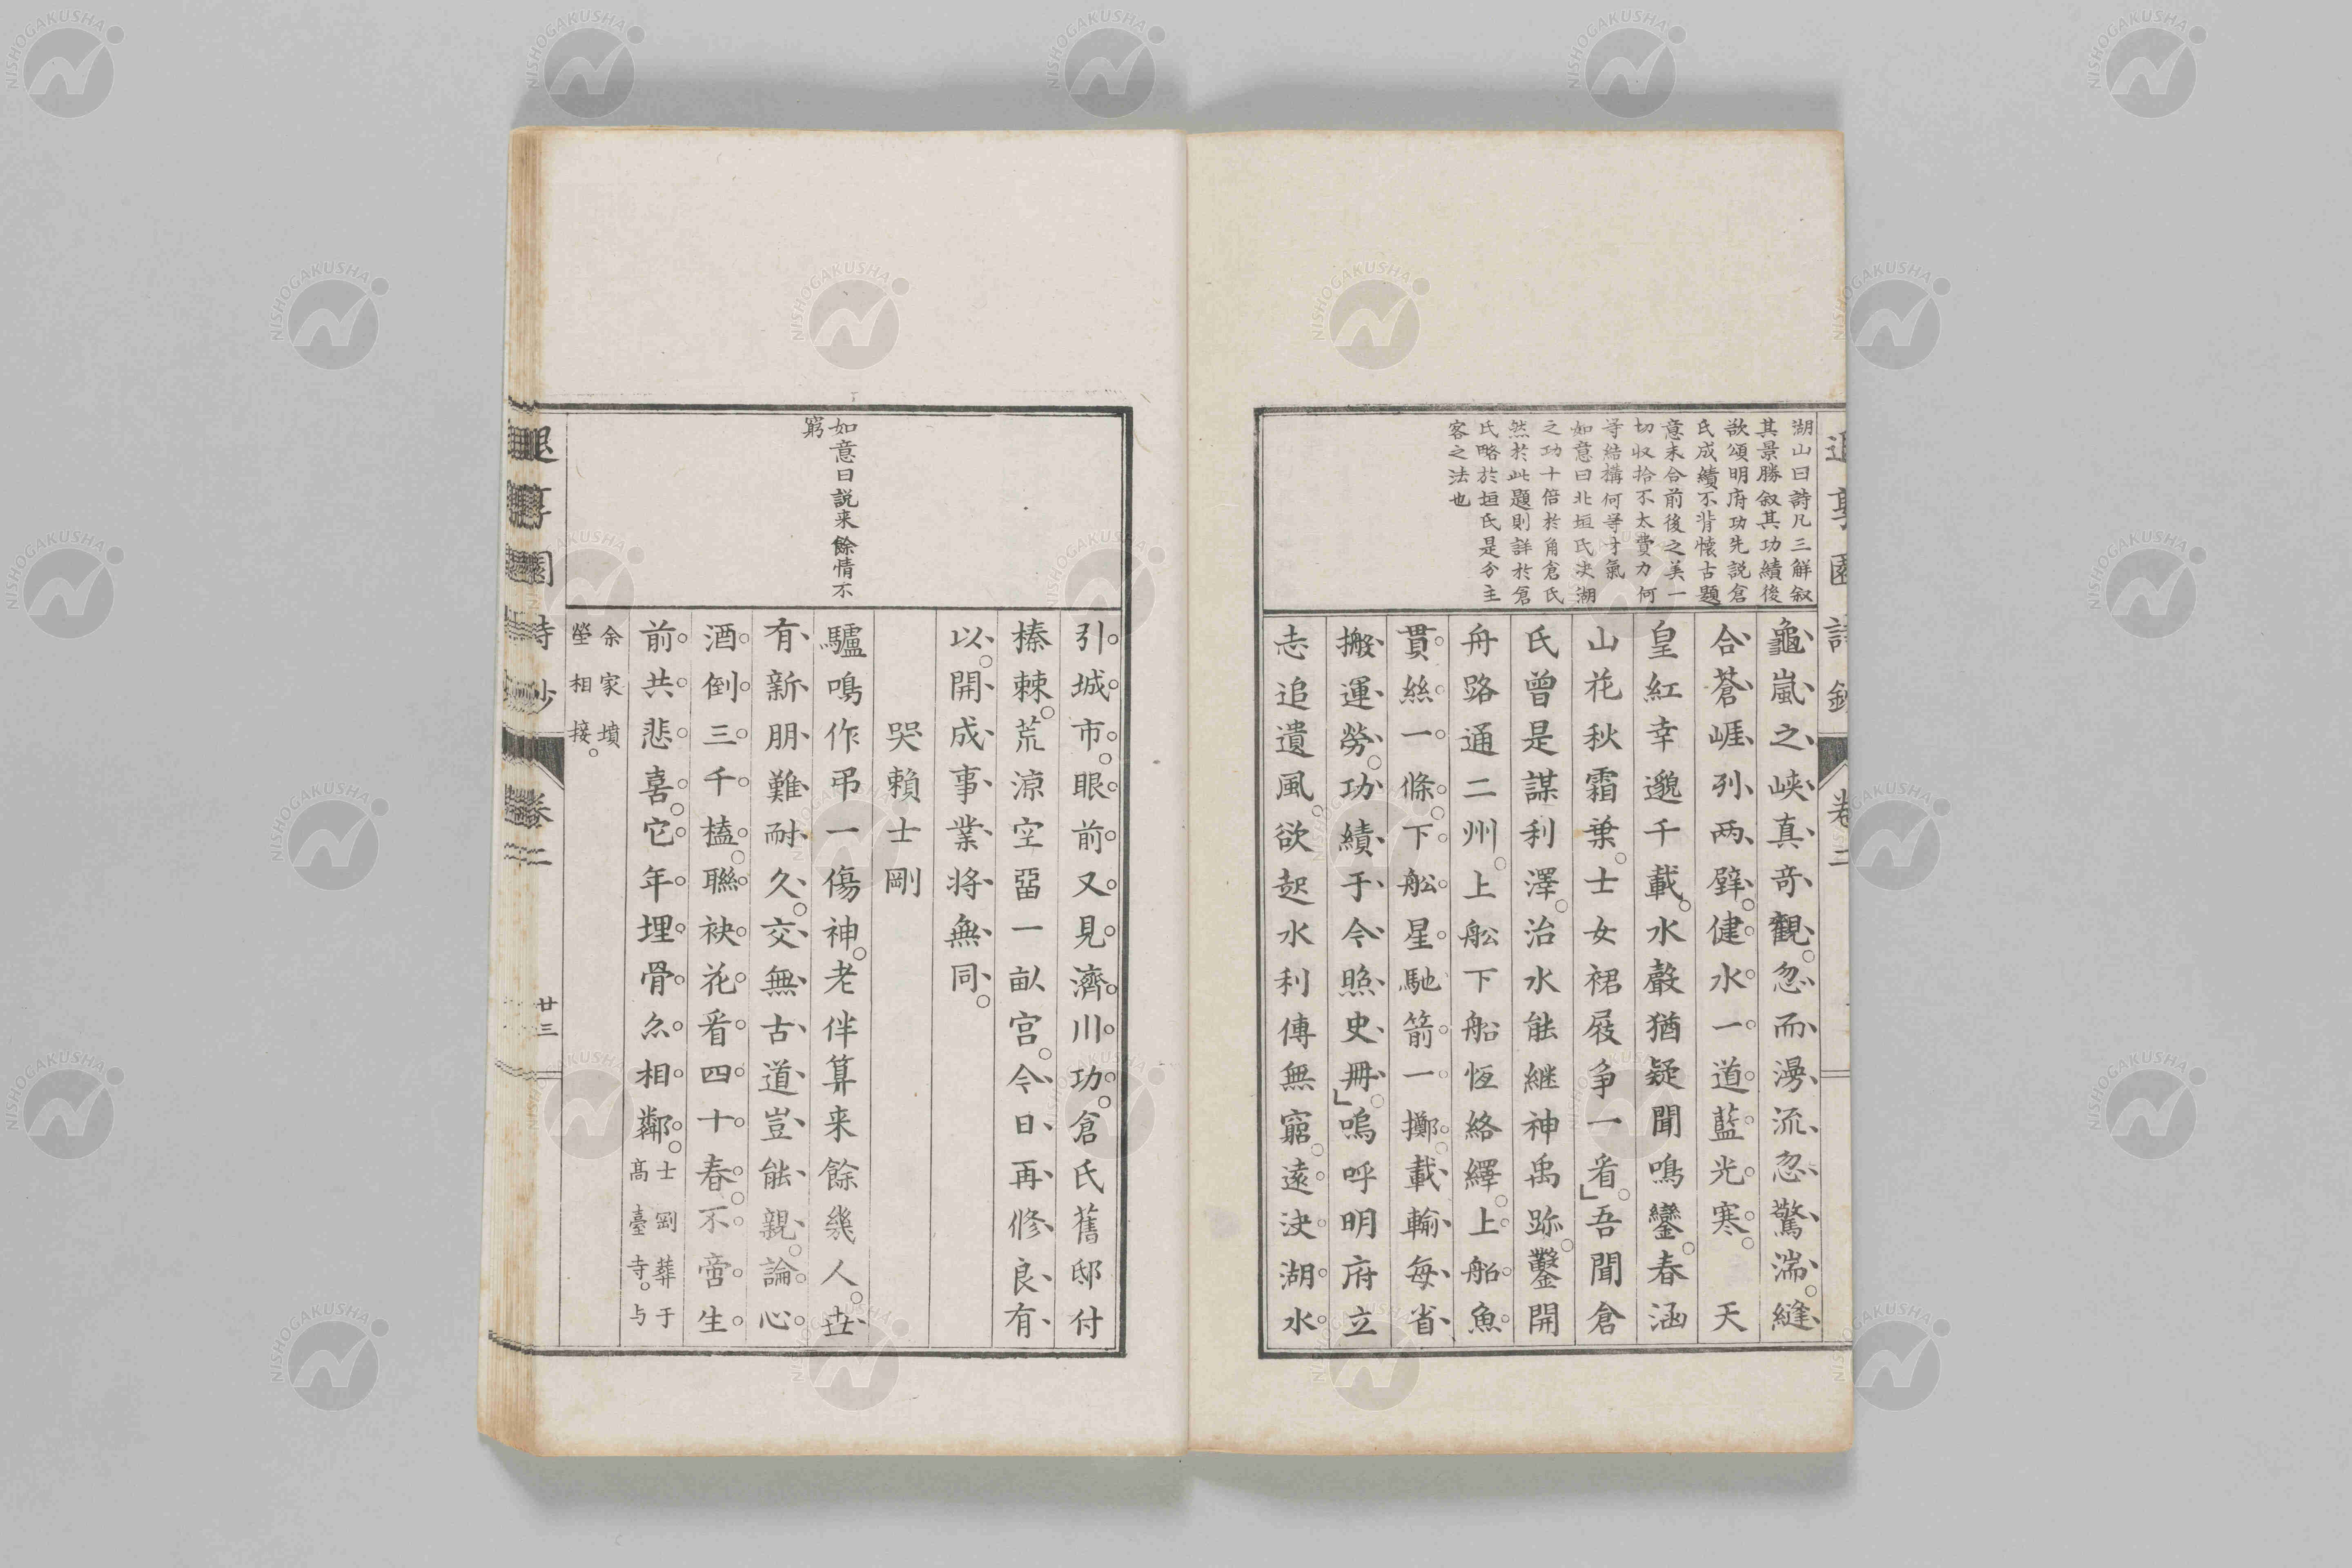 湖山曰詩凡三解叙
其景勝叙其功績後
欲頌明府功先説倉
氏成績不背懐古題
意末合前後之美一
切収拾不太費力何
等結構何等才氣
如意曰北垣氏决湖
之功十倍於角倉氏
然於此題則詳於倉
氏略於垣氏是分主
客之法也
龜嵐之峡真竒觀忽而漫流忽驚湍縫
合蒼崕列兩壁健水一道藍光寒 天
皇紅幸邈千載水聲猶疑聞鳴鑾春涵
山花秋霜葉士女裙屐争一看吾聞倉
氏曾是謀利澤治水能継神禹跡鑿開
舟路通二州上舩下船恆絡繹上船魚
貫絲一條下舩星馳箭一擲載輸毎省
搬運勞功績于今照史冊嗚呼明府立
志追遺風欲起水利傳無窮遠决湖水
引城市眼前又見濟川功倉氏舊邸付
榛棘荒涼空畱一畝宮今日再修良有
以開成事業将無同
哭賴士剛
驢鳴作弔一傷神老伴算来餘幾人世
有新朋難耐久交無古道豈能親論心
酒倒三千榼聯袂花看四十春不啻生
前共悲喜它年埋骨亦相鄰士剛葬于高臺寺与
余家墳
塋相接
如意曰説来餘情不
窮
退享園詩鈔
卷二
廿三
NISHOGAKUSHA